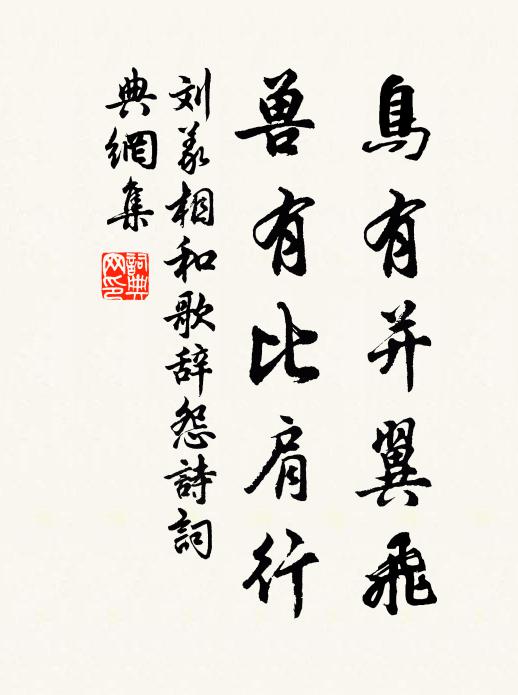 鳥有并翼飛
兽有比肩行
刘義相和歌辞怨詩詞
典網集
詞典
网印